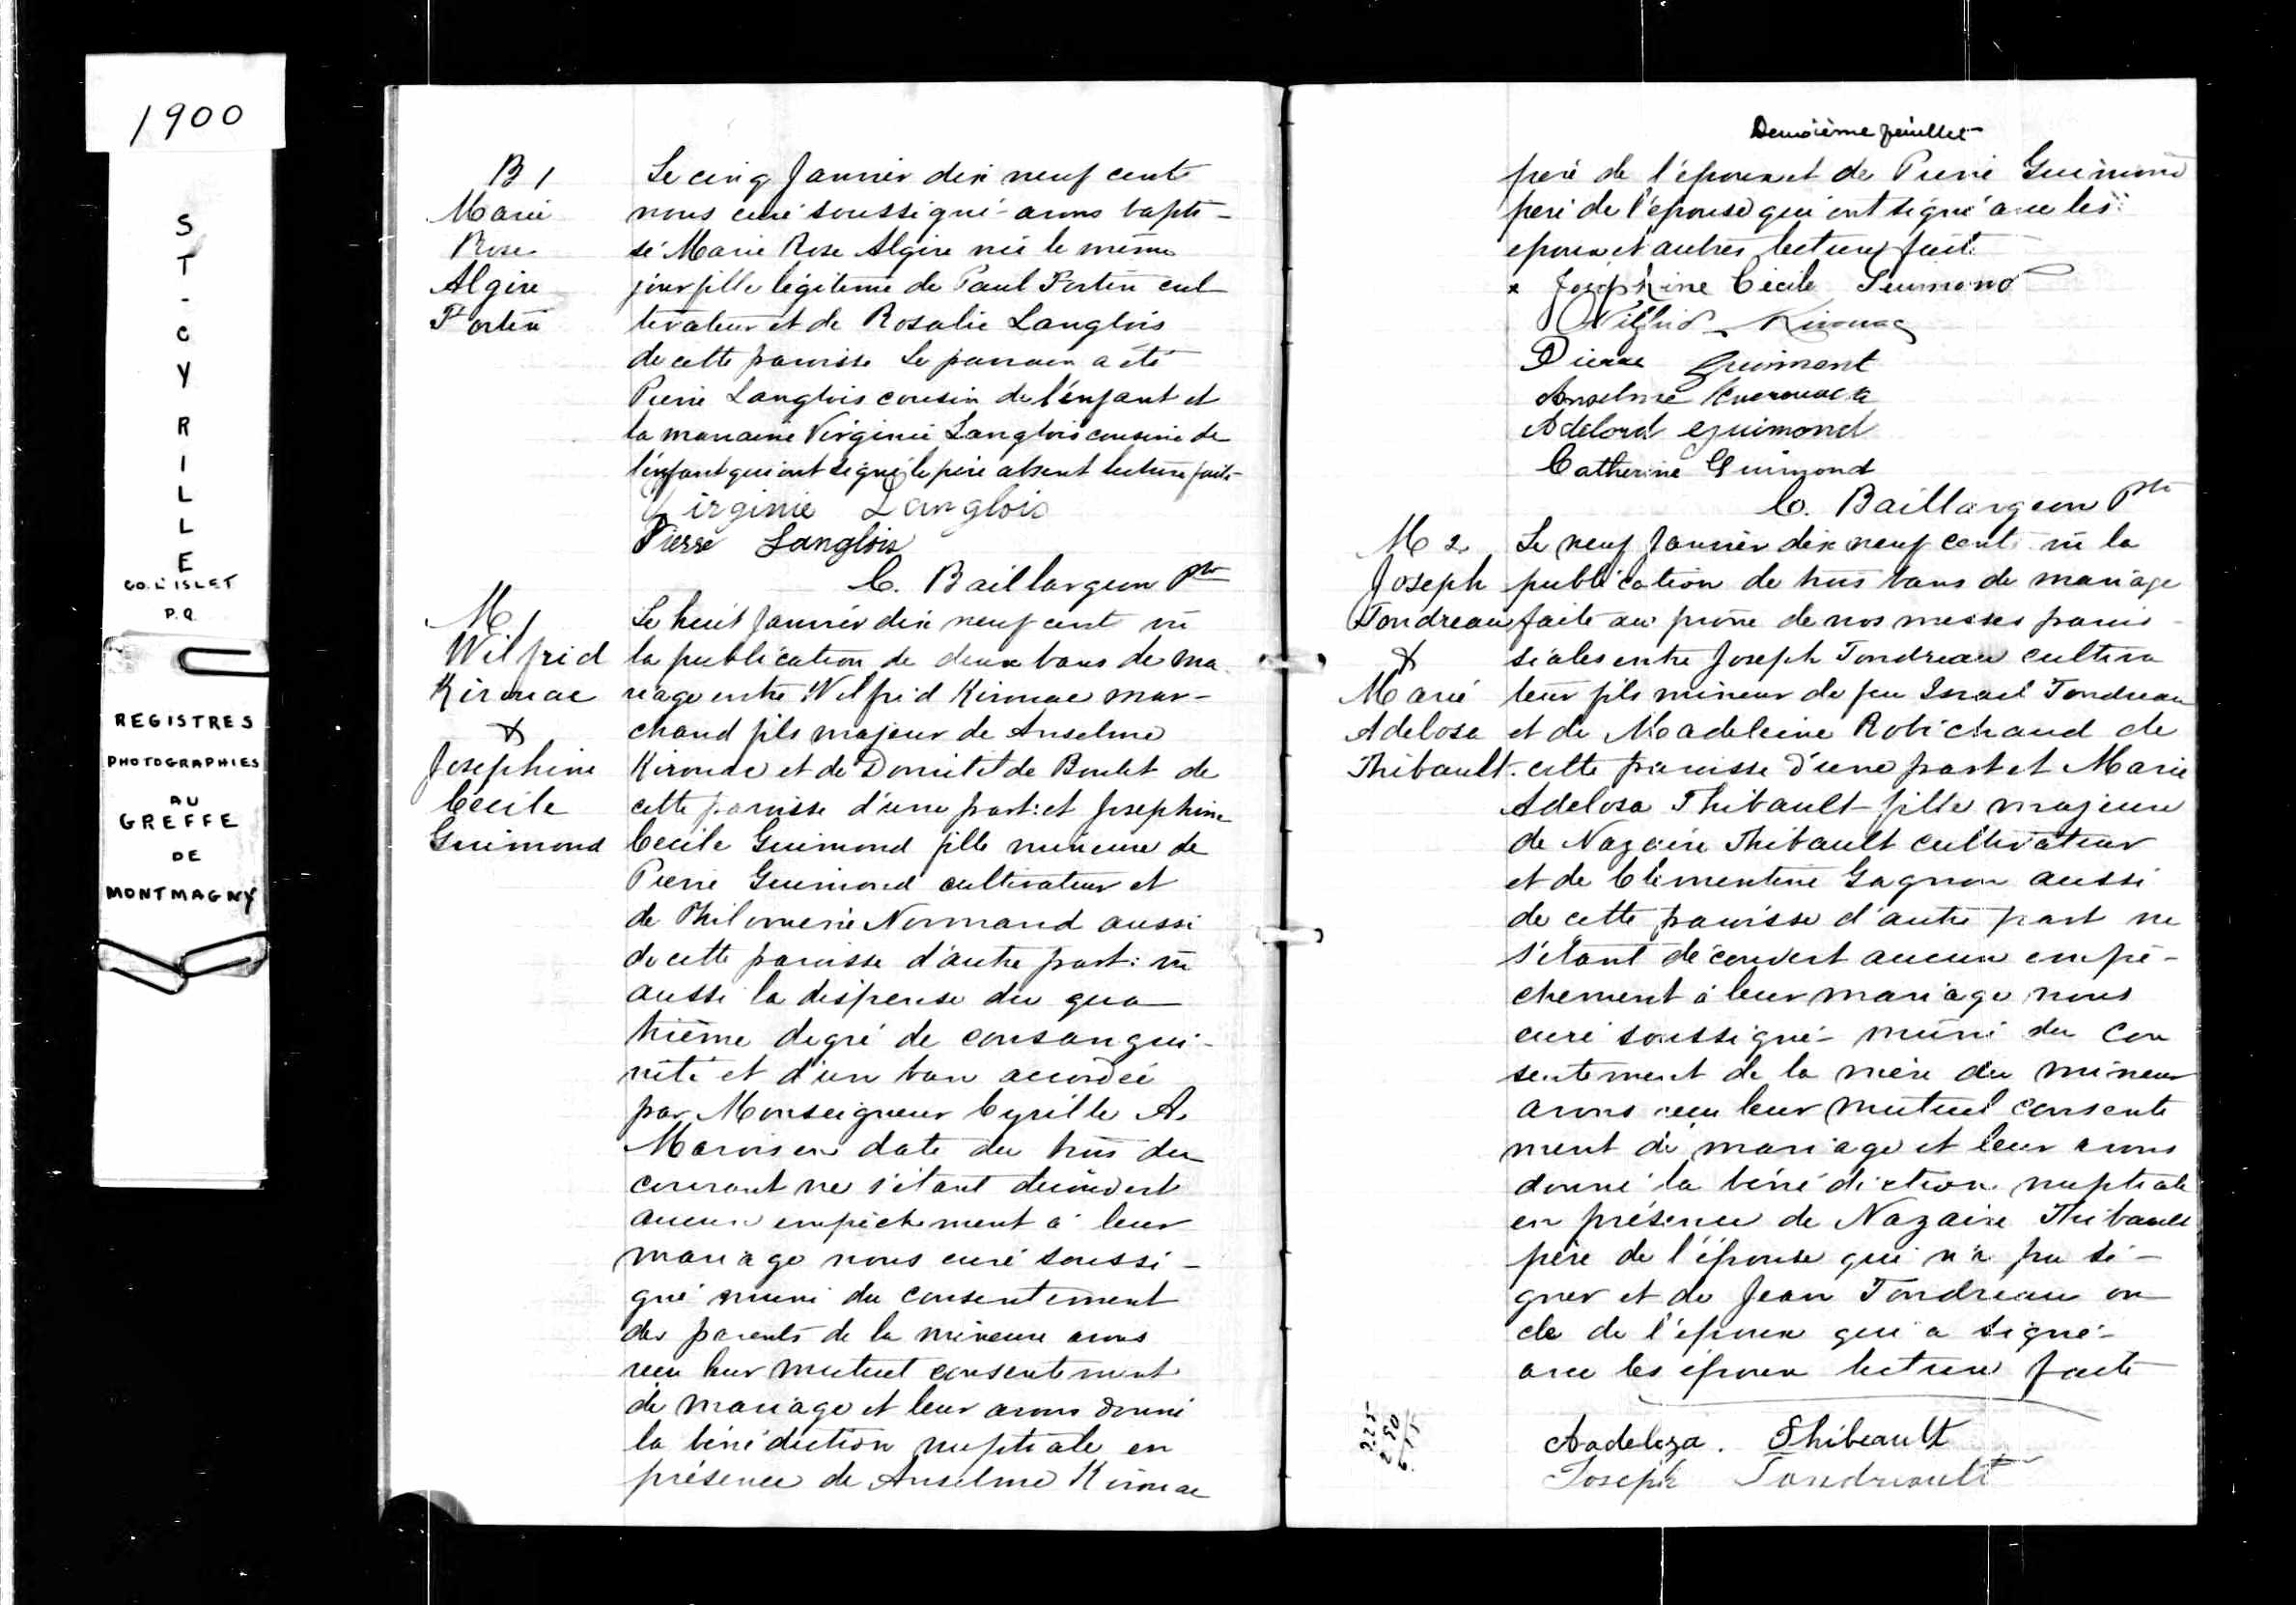 1900
ST-CYRILLE
CO. L'ISLET
P.Q.
REGISTRES
PHOTOGRAPHIES
AU
GREFFE
DE
MONTMAGNY
B 1
Marie
Rose
Algire
Fortin
Le cinq Janvier dix neuf cent
nous curé soussigné avons bapti-
sé Marie Rose Algire née le même
jour fille légitime de Paul Fortin cul
tivateur et de Rosalie Langlois
de cette paroisse Le parrain a été
Pierre Langlois cousin de l'enfant et
la marraine Virginie Langlois cousine de
l'enfant qui ont signé le père absent lecture faite
Virginie Langlois
Pierre Langlois
C. Baillargeon Ptr
M 1
Wilfrid
Kirouac
&
Josephine
Cécile
Guimond
Le huit Janvier dix neuf cent vu
la publication de deux bans de ma
riage entre Wilfrid Kirouac mar-
chand fils majeur de Anselme
Kirouac et de Domitilde Boulet de
cette paroisse d'une part: et Josephine
Cécile Guimond fille mineure de
Pierre Guimond cultivateur et
de Philomène Normand aussi
de cette paroisse d'autre part: vu
aussi la dispense du qua
trième degré de consangui-
nité et d'un ban accordée
par Monseigneur Cyrille A.
Marois en date du trois du
courant ne s'étant découvert
aucun empêchement à leur
mariage nous curé soussi-
gné muni du consentement
des parents de la mineure avons
reçu leur mutuel consentement
de mariage et leur avons donné
la bénédiction nuptiale en
présence de Anselme Kirouac
Deuxième feuillet
père de l'époux et de Pierre Guimond
père de l'épouse qui ont signé avec les
epoux et autres lecture faite
x Joséphine Cécile Guimond
Wilfrid Kirouac
Pierre Guimont
Anselme
Adelord Guimond
Catherine Guimond
C. Baillargeon Ptr
M 2
Joseph
Tondreau
&
Marie
Adelosa
Thibault
Le neuf Janvier dix neuf cent vu la
publication de trois bans de mariage
faite au prône de nos messes parois-
siales entre Joseph Tondreau cultiva
teur fils mineur de feu Israel Tondreau
et de Madeleine Robichaud de
cette paroisse d'une part et Marie
Adelosa Thibault fille majeure
de Nazaire Thibault cultivateur
et de Clémentine Gagnon aussi
de cette paroisse d'autre part ne
s'étant découvert aucun empê-
chement à leur mariage nous
curé soussigné muni du con
sentement de la mère du mineur
avons reçu leur mutuel consente
ment de mariage et leur avons
donné la bénédiction nuptiale
en présence de Nazaire Thibault
père de l'épouse qui n'a pu si-
gner et de Jean Tondreau on
cle de l'époux qui a signé
avec les époux lecture faite
Aadeleza. Thibeault
Joseph Tondreault